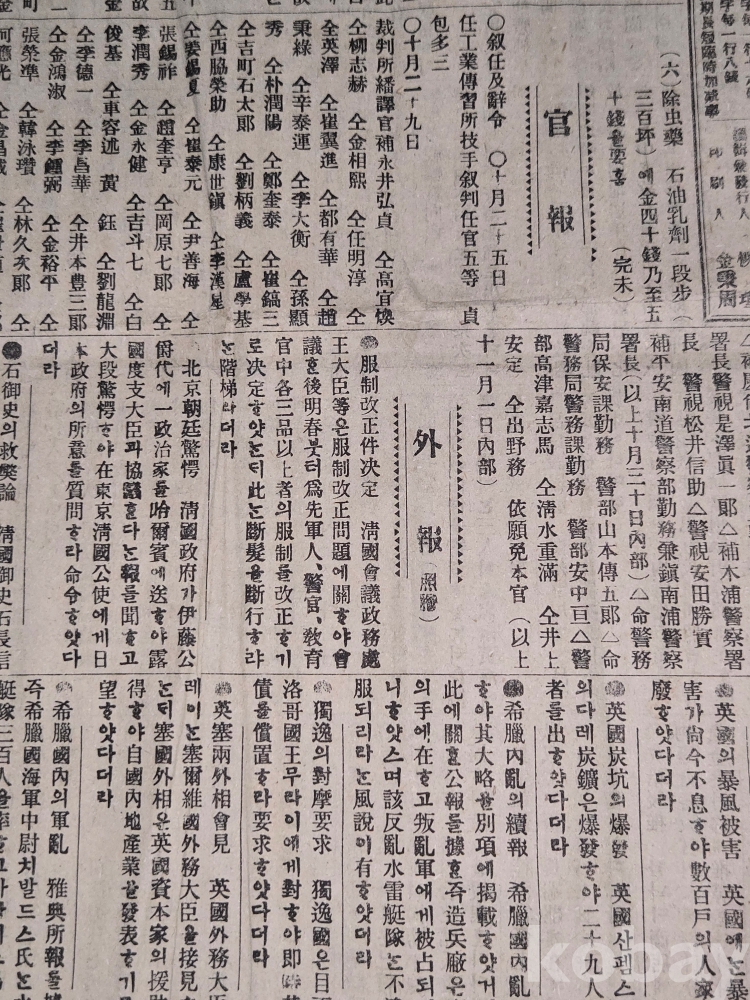 (六)除虫藥 石油乳劑一段步(
三百坏)에金四十錢乃至五
十錢을要홈 (完未)
官報
○叙任及辭令 ○十月二十五日
任工業傳習所技手叙判任官五等 貞
包多三
○十月二十九日
裁判所繙譯官補永井弘貞 仝高宜煥
仝柳志赫 仝金相熙 仝任明淳 仝
全英澤 仝崔翼進 仝都有華 仝趙
秉綠 仝辛泰運 仝李大衡 仝孫顯
秀 仝朴潤陽 仝鄭奎泰 仝崔鎬三
仝吉町石太郞 仝劉柄義 仝盧學基
仝西脇榮助 仝康世鎭 仝李漢星
仝裵錫夏 仝崔泰元 仝尹善海 仝
張錫祚 仝趙奎亨 仝岡原七郞 仝
李潤秀 仝金永健 仝吉斗七 仝白
俊基 仝車容述 黃 鈺 仝劉龍淵
仝李德一 仝李昌華 仝井本豊三郞
仝金鴻淑 仝李鍾弼 仝金裕平 仝
張榮凖 仝韓泳瓚 仝林久次郞 仝
署長警視是澤眞一郞△補木浦警察署
長 警視松井信助△警視安田勝實
補平安南道警察部勤務兼鎭南浦警察
署長(以上十月三十日內部)△命警務
局保安課勤務 警部山本傳五郞△命
警務局警務課勤務 警部安中亘△警
部高津嘉志馬 仝淸水重滿 仝井上
安定 仝出野務 依願免本官(以上
十一月一日內部)
外報
服制改正件决定 淸國會議政務處
王大臣等은服制改正問題에關하야會
議한後明春붓터爲先軍人、警官、敎育
官中各三品以上者의服制를改正하기
로决定하얏는듸此는斷髮을斷行하랴
는階梯라더라
北京朝廷驚愕 淸國政府가伊藤公
爵代에一政治家를哈爾賓에送하야露
國度支大臣과協議한다는報를聞하고
大段驚愕하야在東京淸國公使에게日
本政府의所意를質問하라命令하얏다
더라
石御史의救獘論 淸國御史石長信
英國의暴風被害 英國에는暴
害가尙今不息하야數百戶의人家
廢하얏다더라
英國炭坑의爆發 英國산펩스
의다레炭鑛은爆發하야二十九人
者를出하얏다더라
希臘內亂의續報 希臘國內亂
하야其大略을別項에揭載하얏거
此에關한公報를據한즉造兵廠은
의手에在하고叛亂軍에게被占되
니하얏스며該反亂水雷艇隊는不
服되리라는風說이有하얏더라
獨逸의對摩要求 獨逸國은日
洛哥國王무라이에게對하야即
債를償置하라要求하얏다더라
英塞兩外相會見 英國外務大
레이는塞爾維國外務大臣을接見
는듸塞國外相은英國資本家의援
得하야自國內地產業을發表하기
望하얏다더라
希臘國內의軍亂 雅典所報를據
즉希臘國海軍中尉치발드스氏는水
艇隊三百人을率하고
kobay